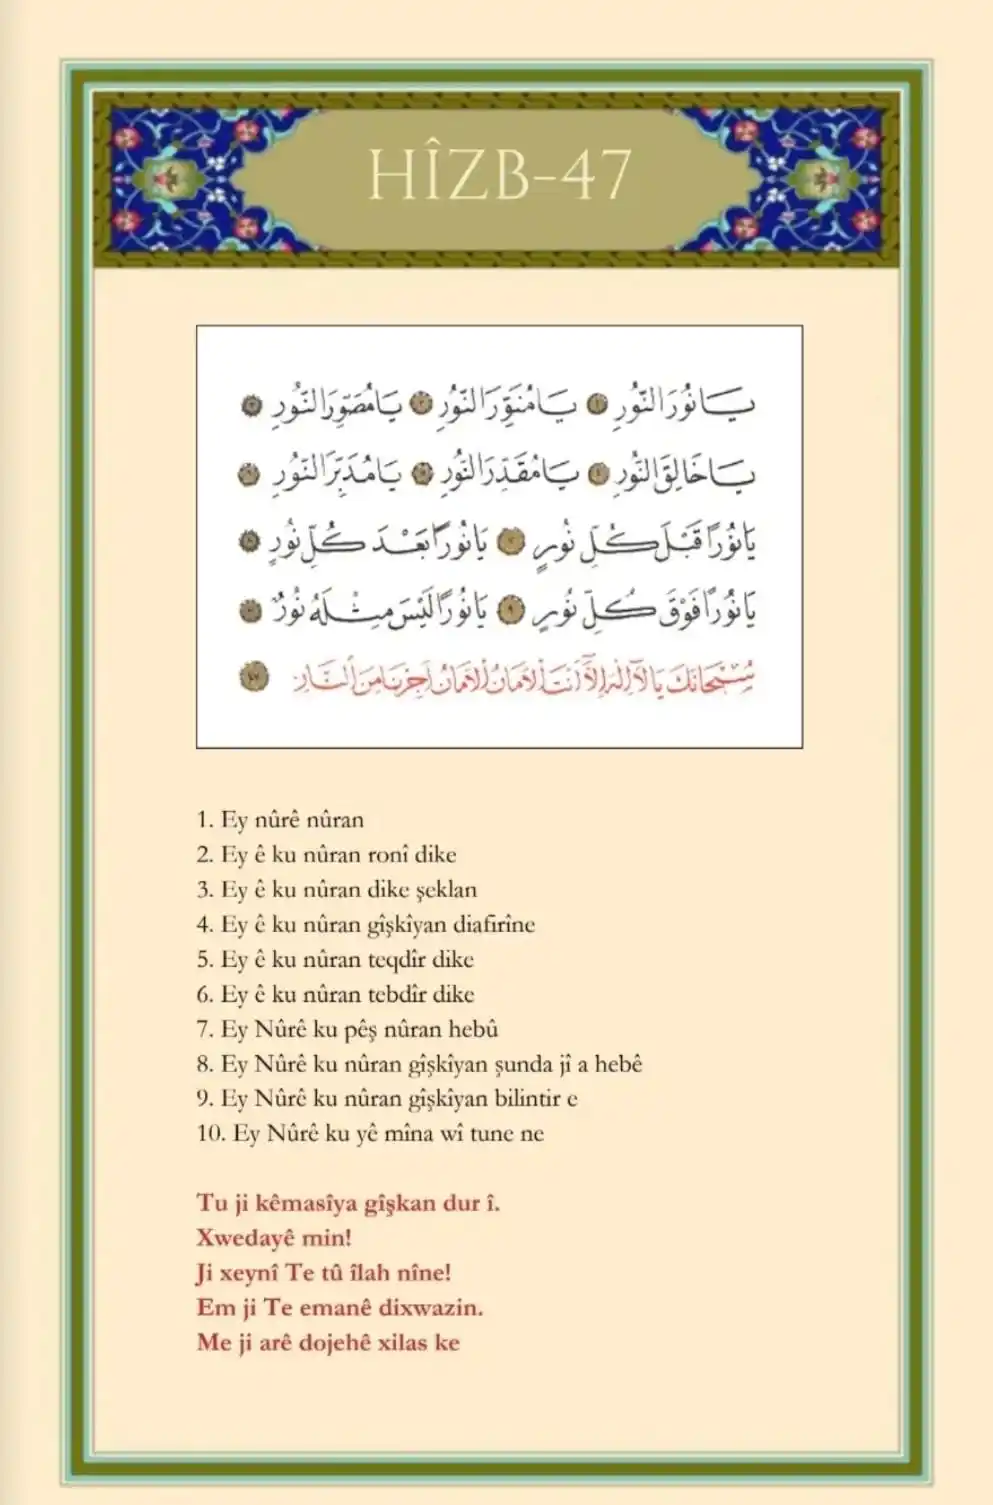 HÎZB-47
يَا نُورَ النُّورِ ١ يَا مُنَوِّرَ النُّورِ ٢ يَا مُصَوِّرَ النُّورِ ٣
يَا خَالِقَ النُّورِ ٤ يَا مُقَدِّرَ النُّورِ ٥ يَا مُدَبِّرَ النُّورِ ٦
يَا نُورًا قَبْلَ كُلِّ نُورٍ ٧ يَا نُورًا بَعْدَ كُلِّ نُورٍ ٨
يَا نُورًا فَوْقَ كُلِّ نُورٍ ٩ يَا نُورًا لَيْسَ مِثْلَهُ نُورٌ ١٠
سُبْحَانَكَ يَا لَآ اِلٰهَ اِلَّآ اَنْتَ اَلْاَمَانُ الْاَمَانُ اَجِرْنَا مِنَ النَّارِ ٤٧
1. Ey nûrê nûran
2. Ey ê ku nûran ronî dike
3. Ey ê ku nûran dike şeklan
4. Ey ê ku nûran gîşkîyan diafirîne
5. Ey ê ku nûran teqdîr dike
6. Ey ê ku nûran tebdîr dike
7. Ey Nûrê ku pêş nûran hebû
8. Ey Nûrê ku nûran gîşkîyan şunda jî a hebê
9. Ey Nûrê ku nûran gîşkîyan bilintir e
10. Ey Nûrê ku yê mîna wî tune ne
Tu ji kêmasîya gîşkan dur î.
Xwedayê min!
Ji xeynî Te tû îlah nîne!
Em ji Te emanê dixwazin.
Me ji arê dojehê xilas ke